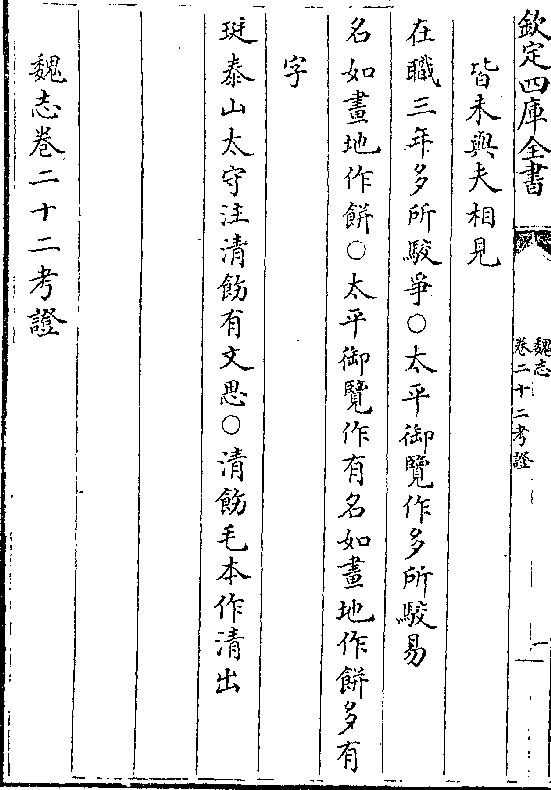 欽定四庫全書
魏志
卷二十二考證
皆未與夫相見
在職三年多所駮爭○太平御覽作多所駮易
名如畫地作餅○太平御覽作有名如畫地作餅多有
字
珽泰山太守注清飭有文思○清飭毛本作清出
魏志卷二十二考證